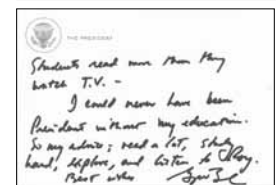 THE PRESIDENT
Students read more than they
watch T.V. –
I could never have been
President without my education.
So my advice; read a lot, study
hard, explore, and listen to
Best wishes